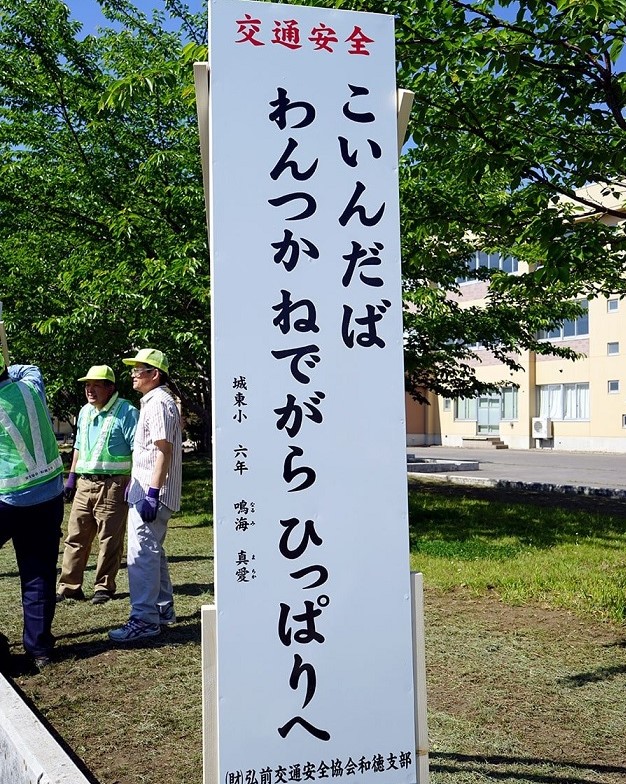 交通安全
こいんだば
わんつか ねでがら ひっぱりへ
城東小 六年 鳴海 真愛
なるみ まちか
(財)弘前交通安全協会和徳支部